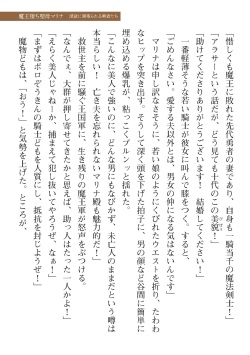 魔王堕ち聖母マリナ 淫獄に蹂躙される姉者たち
「惜しくも魔王に敗れた先代勇者の妻であり、自身も一騎当千の魔法剣士！」
「アラサーという話だが、どう見ても十代のこの美貌！」
「助けてくださりありがとうございます！ 結婚してください！」
一番軽薄そうな若い騎士が彼女に叫んで膝をつく。すると、
「ごめんなさい。愛する夫以外とは、男女の仲になる気はないんです」
マリナは申し訳なさそうに、若い娘のようにくびれたウエストを折り、たわわ
なヒップを突き出す。そうして深く頭を下げた拍子に、男の顔など谷間に簡単に
埋め込める爆乳が、粘っこくブルンッと揺れた。
「こんなに美人で強いのに、どんな男にもなびかず、未亡人のままだという噂は
本当らしい！ 亡き夫を忘れられないマリナ殿も魅力的だ！」
救世主を前に騒ぐ王国軍に、生き残りの魔王軍が怒声をぶつける。
「なんでぇ、大群が押し寄せてきたかと思えば、助っ人はたった一人かよ！」
「えらく美人じゃねえか。捕まえて犯し抜いてやろうぜ、なぁ！」
「まずはボロぞうきんの騎士どもを人質にし、抵抗を封じようぜ！」
魔物どもは、「おう！」と気勢を上げた。ところが、